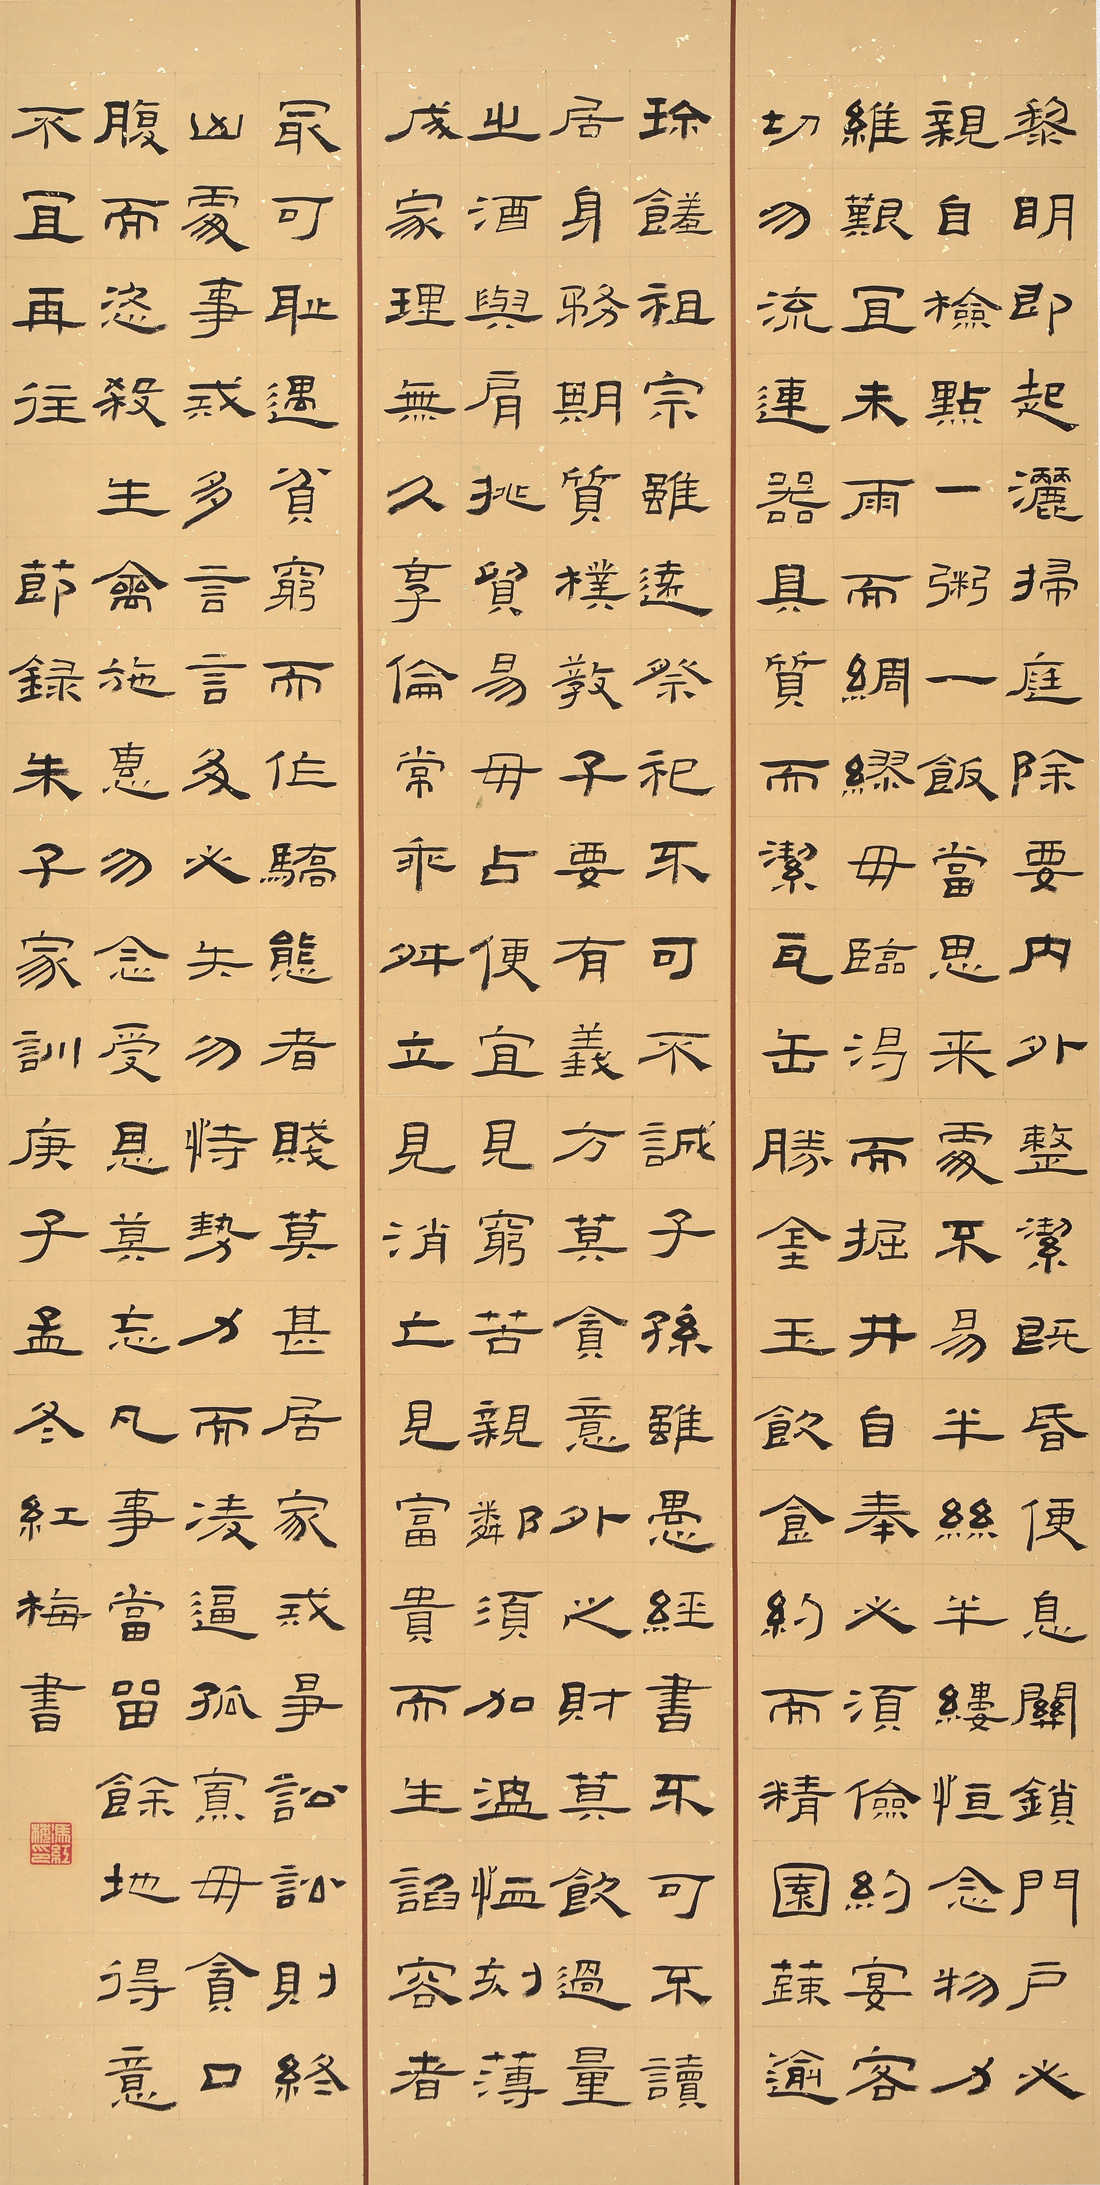 黎明即起灑掃庭除要内外整潔既昏便息關鎖門戶必
親自檢點一粥一飯當思来處不易半絲半縷恒念物力
維艱宜未雨而綢繆毋臨渴而掘井自奉必須儉約宴客
切勿流連器具質而潔瓦缶勝金玉飲食約而精園蔬逾
珎饈祖宗雖遠祭祀不可不誠子孫雖愚經書不可不讀
居身務期質樸教子要有義方莫貪意外之財莫飲過量
之酒與肩挑貿易毋占便宜見窮苦親鄰須加温恤刻薄
成家理無久享倫常乖舛立見消亡見富貴而生諂容者
最可恥遇貧窮而作驕態者賤莫甚居家戒爭訟訟則終
凶處事戒多言言多必失勿恃勢力而凌逼孤寡毋貪口
腹而恣殺生禽施惠勿念受恩莫忘凡事當留餘地得意
不宜再往 節録朱子家訓庚子孟冬紅梅書
馮紅梅印